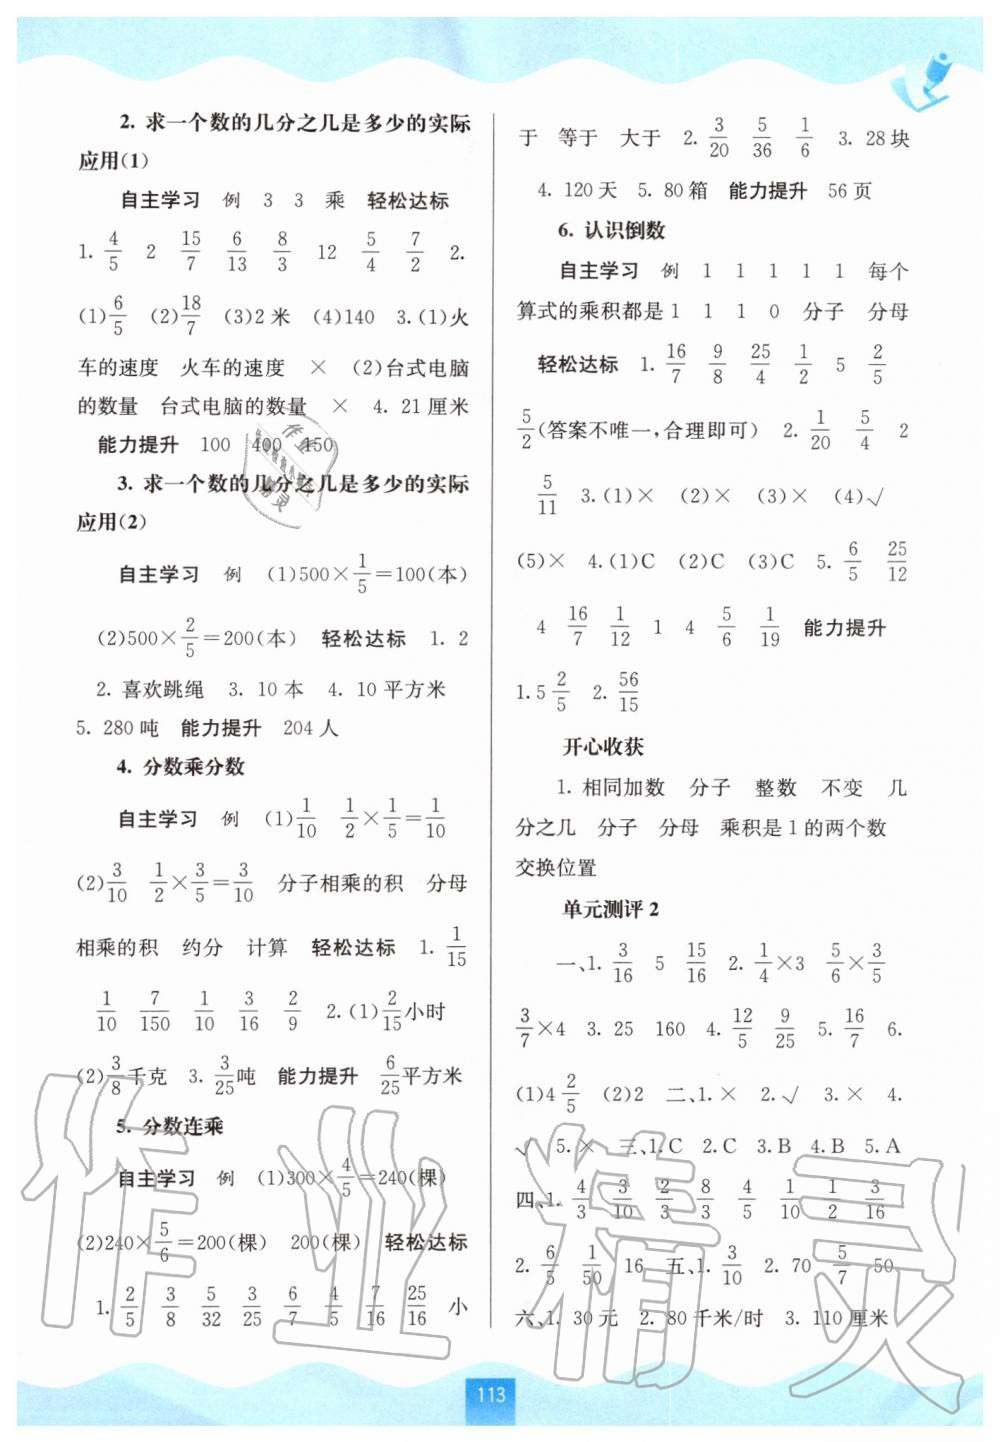 2. 求一个数的几分之几是多少的实际
应用(1)
自主学习 例 3 3 乘 轻松达标
1. 4/5 2 15/7 6/13 8/3 12 5/4 7/2 2.
(1)6/5 (2)18/7 (3)2米 (4)140 3.(1)火
车的速度 火车的速度 × (2)台式电脑
的数量 台式电脑的数量 × 4. 21厘米
能力提升 100 400 150
3. 求一个数的几分之几是多少的实际
应用(2)
自主学习 例 (1)500×1/5=100(本)
(2)500×2/5=200(本) 轻松达标 1. 2
2. 喜欢跳绳 3. 10本 4. 10平方米
5. 280吨 能力提升 204人
4. 分数乘分数
自主学习 例 (1)1/10 1/2×1/5=1/10
(2)3/10 1/2×3/5=3/10 分子相乘的积 分母
相乘的积 约分 计算 轻松达标 1. 1/15
1/10 7/150 1/10 3/16 2/9 2.(1)2/15小时
(2)3/8千克 3. 3/25吨 能力提升 6/25平方米
5. 分数连乘
自主学习 例 (1)300×4/5=240(棵)
(2)240×5/6=200(棵) 200(棵) 轻松达标
1. 2/5 3/8 5/32 3/25 6/7 4/5 7/16 25/16 小
于 等于 大于 2. 3/20 5/36 1/6 3. 28块
4. 120天 5. 80箱 能力提升 56页
6. 认识倒数
自主学习 例 1 1 1 1 1 每个
算式的乘积都是1 1 1 0 分子 分母
轻松达标 1. 16/7 9/8 25/4 1/2 5 2/5
5/2(答案不唯一,合理即可) 2. 1/20 5/4 2
5/11 3.(1)× (2)× (3)× (4)√
(5)× 4.(1)C (2)C (3)C 5. 6/5 25/12
4 16/7 1/12 1 4 5/6 1/19 能力提升
1. 5 2/5 2. 56/15
开心收获
1. 相同加数 分子 整数 不变 几
分之几 分子 分母 乘积是1的两个数
交换位置
单元测评2
一、1. 3/16 5 15/16 2. 1/4×3 5/6×3/5
3/7×4 3. 25 160 4. 12/5 9/25 5. 16/7 6.
(1)4 2/5 (2)2 二、1. × 2. √ 3. × 4.
√ 5. × 三、1. C 2. C 3. B 4. B 5. A
四、1. 4/3 3/10 2/3 8/3 4/5 1/10 1/2 3/16
2. 6/5 1/50 16 五、1. 3/10 2. 70 5/7 50
六、1. 30元 2. 80千米/时 3. 110厘米
113
作业精灵